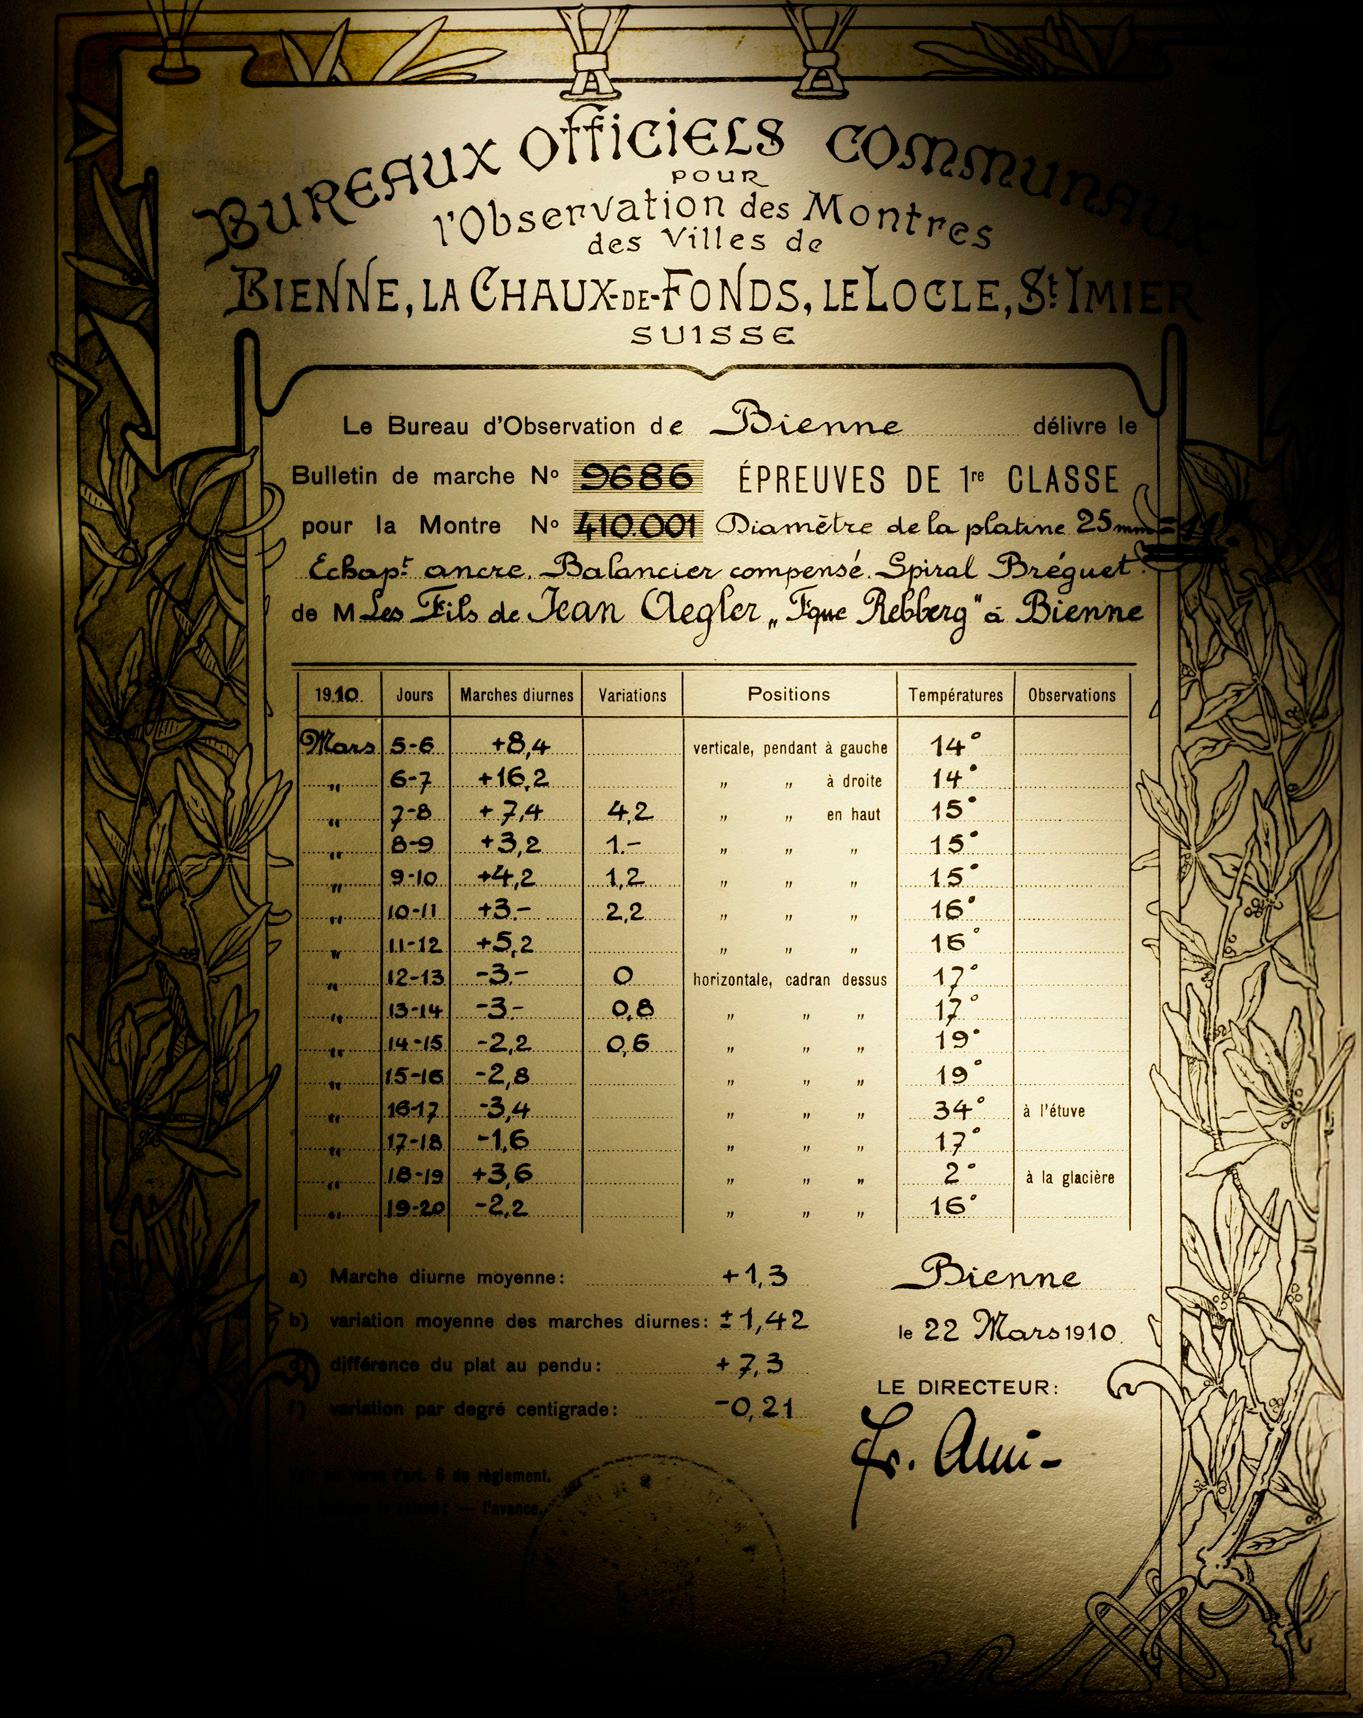 BUREAUX OFFICIELS COMMUNAUX
POUR
l'Observation des Montres
des Villes de
BIENNE, LA CHAUX-DE-FONDS, LE LOCLE, St IMIER
SUISSE
Le Bureau d'Observation de Bienne délivre le
Bulletin de marche No 9686 ÉPREUVES DE 1re CLASSE
pour la Montre No 410.001 Diamètre de la platine 25 mm = 11
Echapt ancre. Balancier compensé. Spiral Bréguet.
de M Les Fils de Jean Aegler „Fque Rebberg" à Bienne
1910. Jours Marches diurnes Variations Positions Températures Observations
Mars 5-6 +8,4 verticale, pendant à gauche 14°
„ 6-7 +16,2 „ „ à droite 14°
„ 7-8 +7,4 4,2 „ „ en haut 15°
„ 8-9 +3,2 1.- „ „ „ 15°
„ 9-10 +4,2 1,2 „ „ „ 15°
„ 10-11 +3.- 2,2 „ „ „ 16°
„ 11-12 +5,2 „ „ „ 16°
„ 12-13 -3.- 0 horizontale, cadran dessus 17°
„ 13-14 -3.- 0,8 „ „ „ 17°
„ 14-15 -2,2 0,6 „ „ „ 19°
„ 15-16 -2,8 „ „ „ 19°
„ 16-17 -3,4 „ „ „ 34° à l'étuve
„ 17-18 -1,6 „ „ „ 17°
„ 18-19 +3,6 „ „ „ 2° à la glacière
„ 19-20 -2,2 „ „ „ 16°
a) Marche diurne moyenne: +1,3
b) variation moyenne des marches diurnes: ±1,42
d) différence du plat au pendu: +7,3
f) variation par degré centigrade: -0,21
Bienne
le 22 Mars 1910.
LE DIRECTEUR:
Voir au verso l'art. 6 du règlement.
le retard; — l'avance.